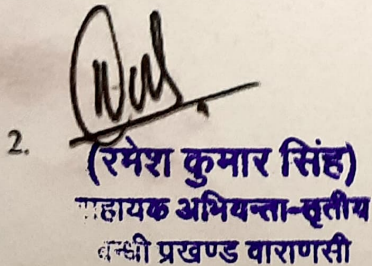 2.
(रमेश कुमार सिंह)
सहायक अभियन्ता-तृतीय
बन्धी प्रखण्ड वाराणसी